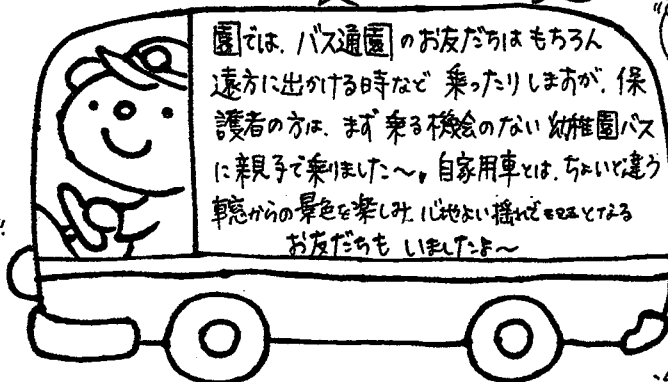 園では、バス通園のお友だちはもちろん
遠方に出かける時など 乗ったりしますが、保
護者の方は、まず乗る機会のない 幼稚園バス
に親子で乗りました〜。自家用車とは、ちょいと違う
車窓からの景色を楽しみ、心地よい揺れで となる
お友だちも いましたよ〜